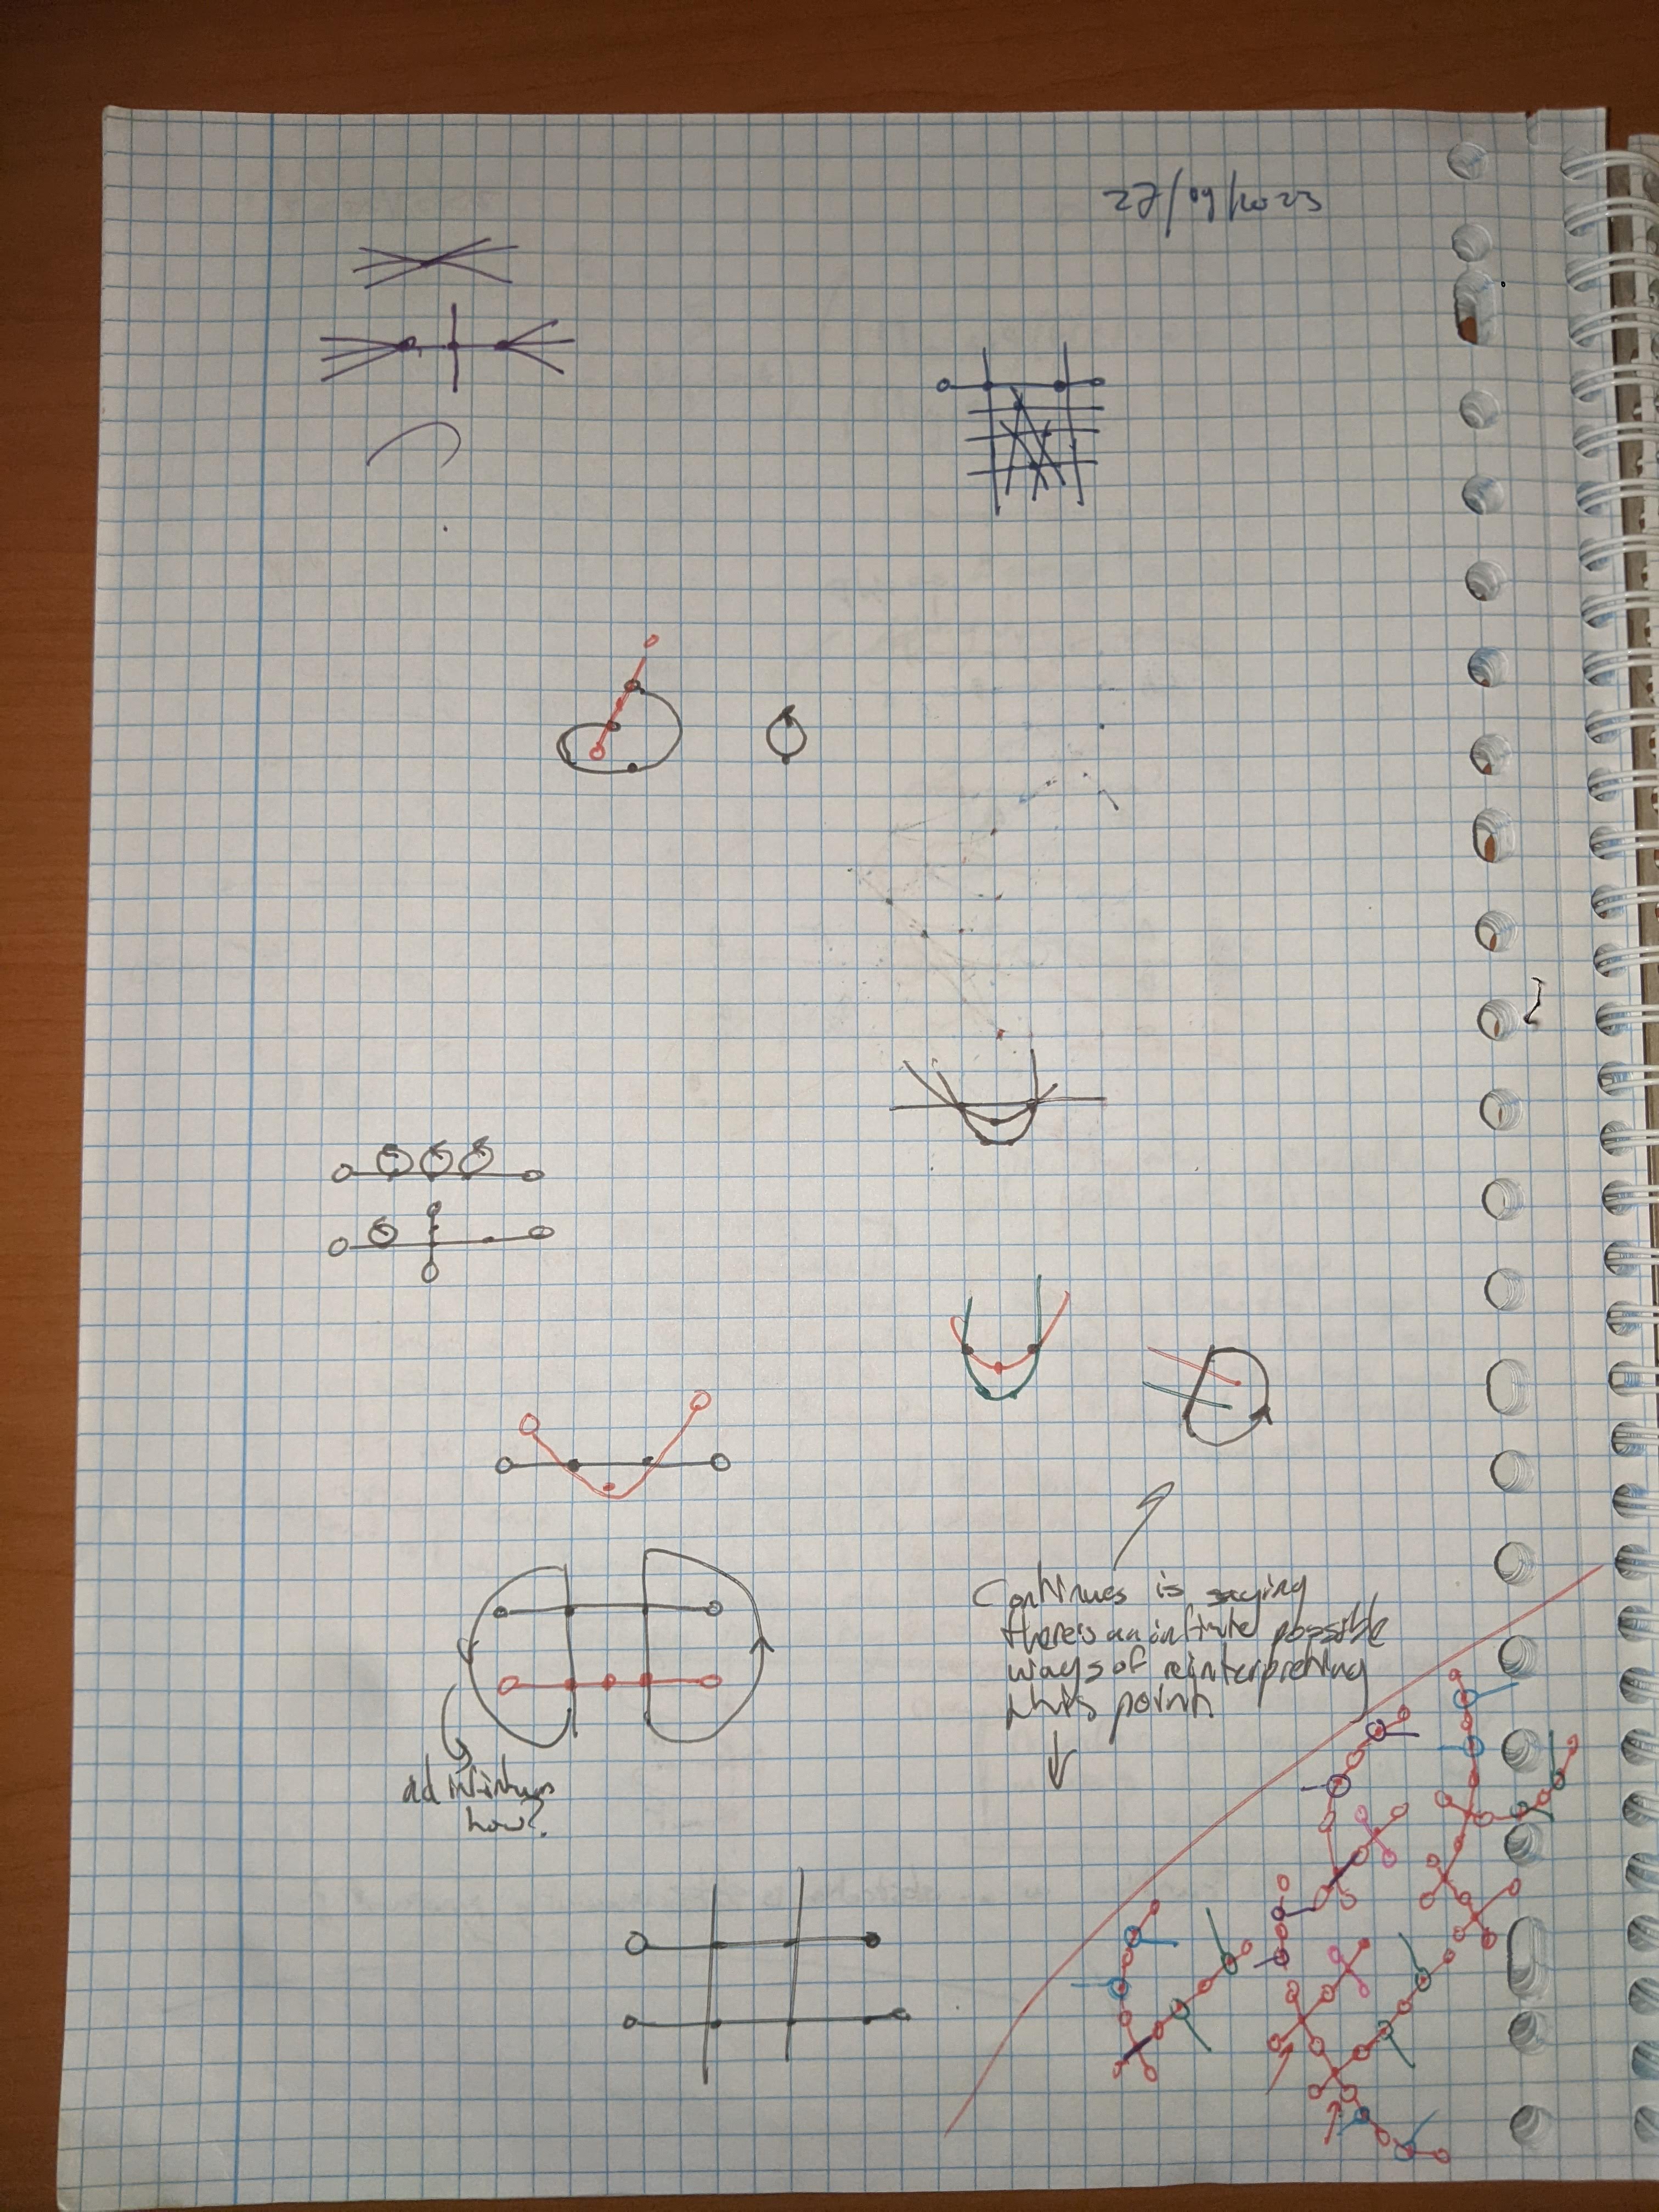 27/09/2023
Continues is saying
there's an infinite possible
ways of reinterpreting
this point.
ad infinitum
how?